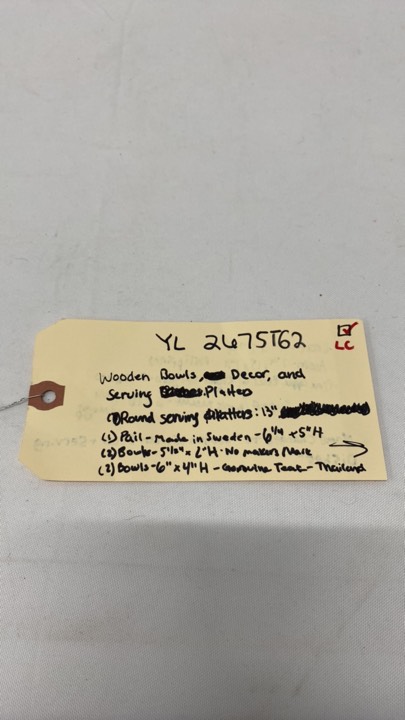 YL 2675T62
LC
Wooden Bowls, Decor, and
Serving Platters
(1) Round serving platters: 13"
(1) Pail - Made in Sweden - 6 1/4 x 5"H
(2) Bowls - 5 1/2" x 2"H - No makers Mark
(2) Bowls - 6" x 4"H - Genuine Teak - Thailand